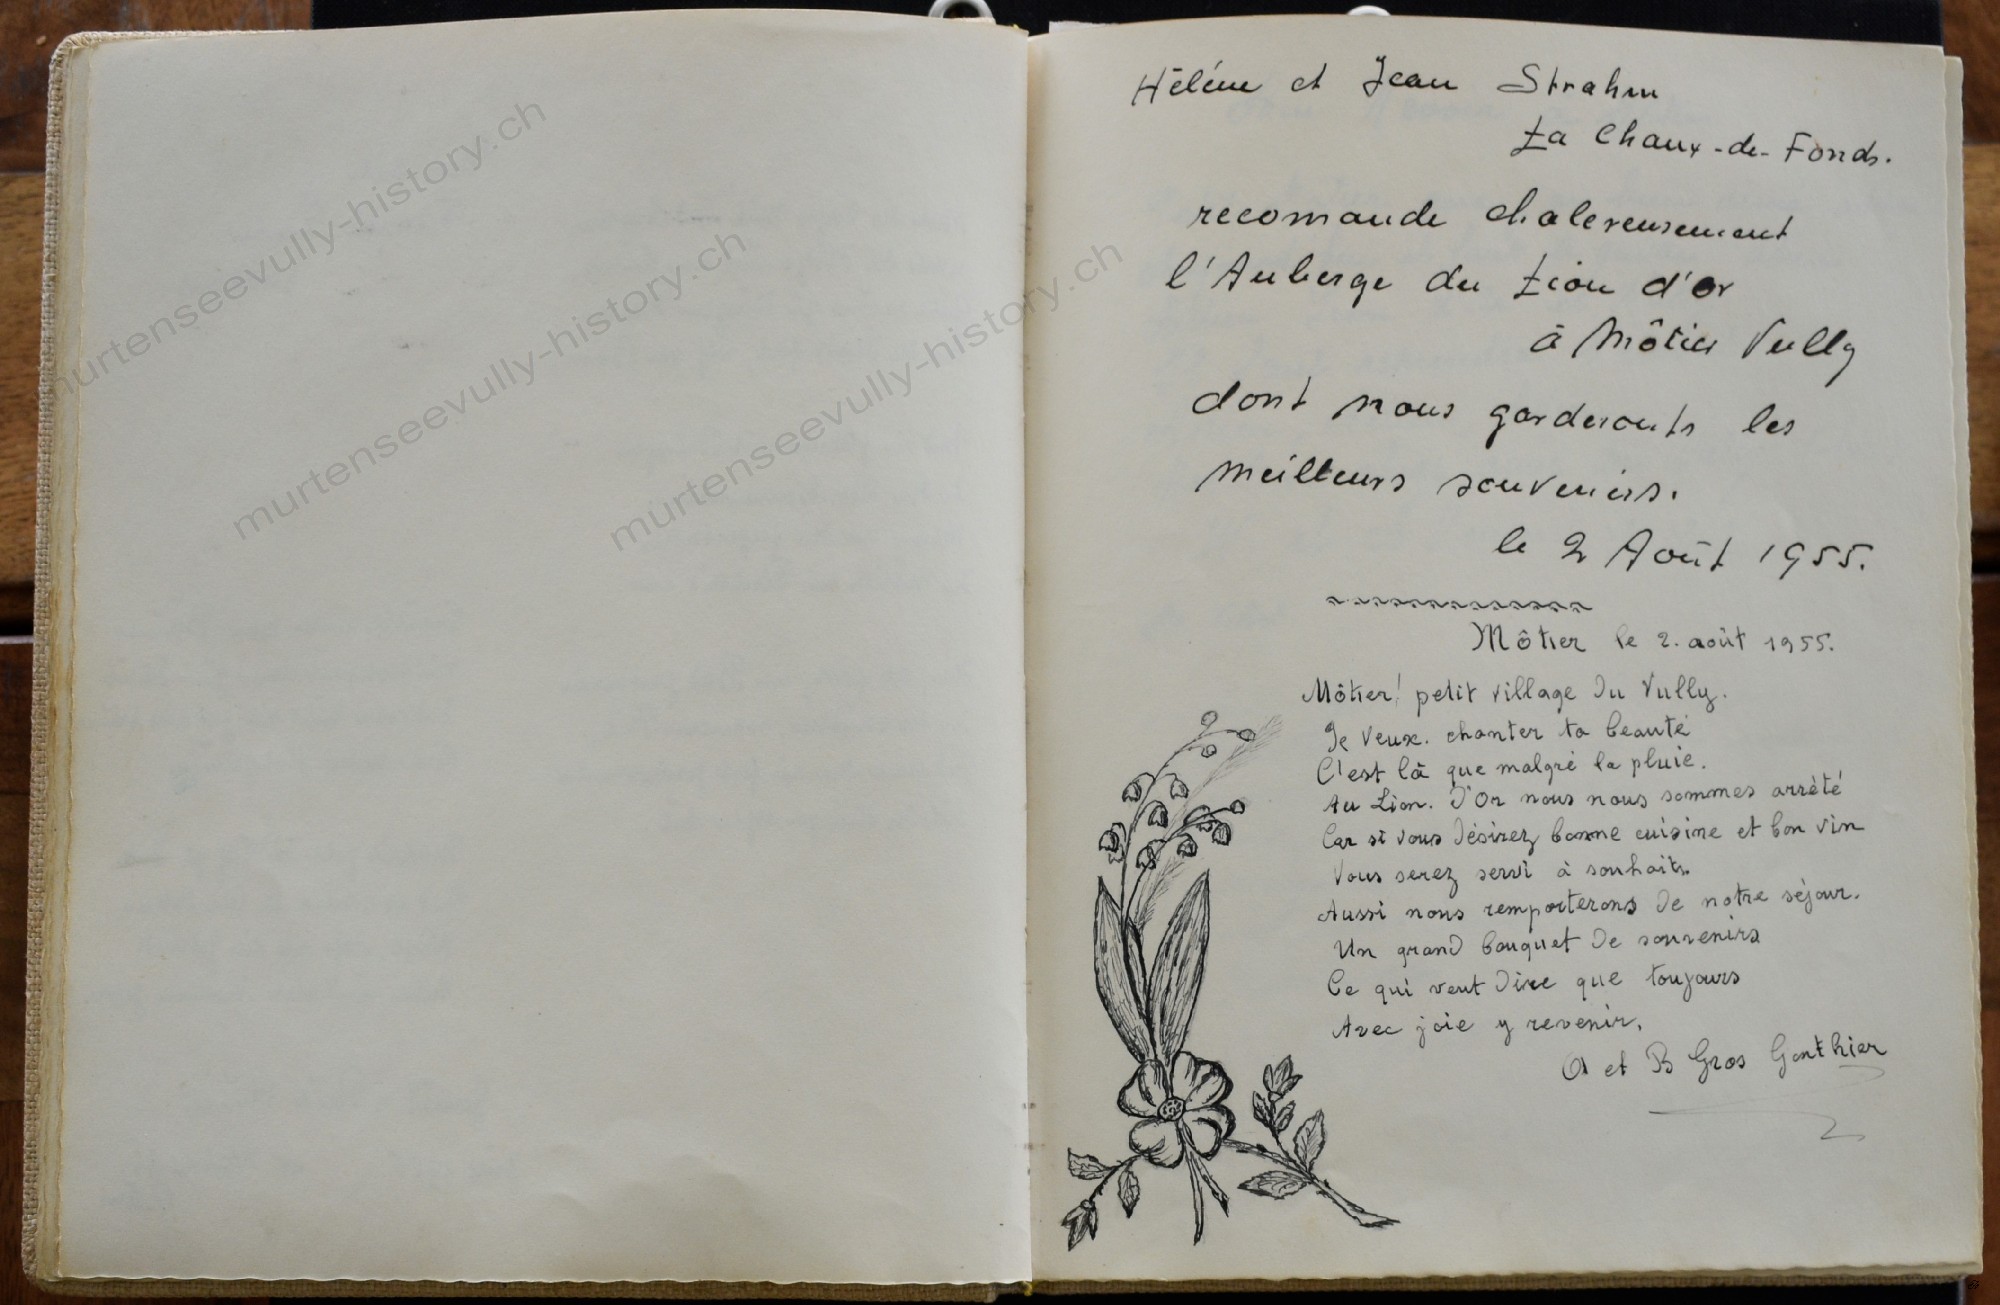 murtenseevully-history.ch
murtenseevully-history.ch
murtenseevully-history.ch
Hélène et Jean Strahm
La Chaux-de-Fonds.
recomande chalereusement
l'Auberge du Lion d'or
à Môtier Vully
dont nous garderonts les
meilleurs souvenirs.
le 2 Août 1955.
Môtier le 2. août 1955.
Môtier! petit village du Vully.
Je veux. chanter ta beauté
C'est là que malgré la pluie.
Au Lion. d'Or nous nous sommes arrêté
Car si vous désirez bonne cuisine et bon vin
Vous serez servi à souhaits.
Aussi nous remporterons de notre séjour.
Un grand bouquet de souvenirs
Ce qui veut dire que toujours
Avec joie y revenir.
A et B Gros Gonthier